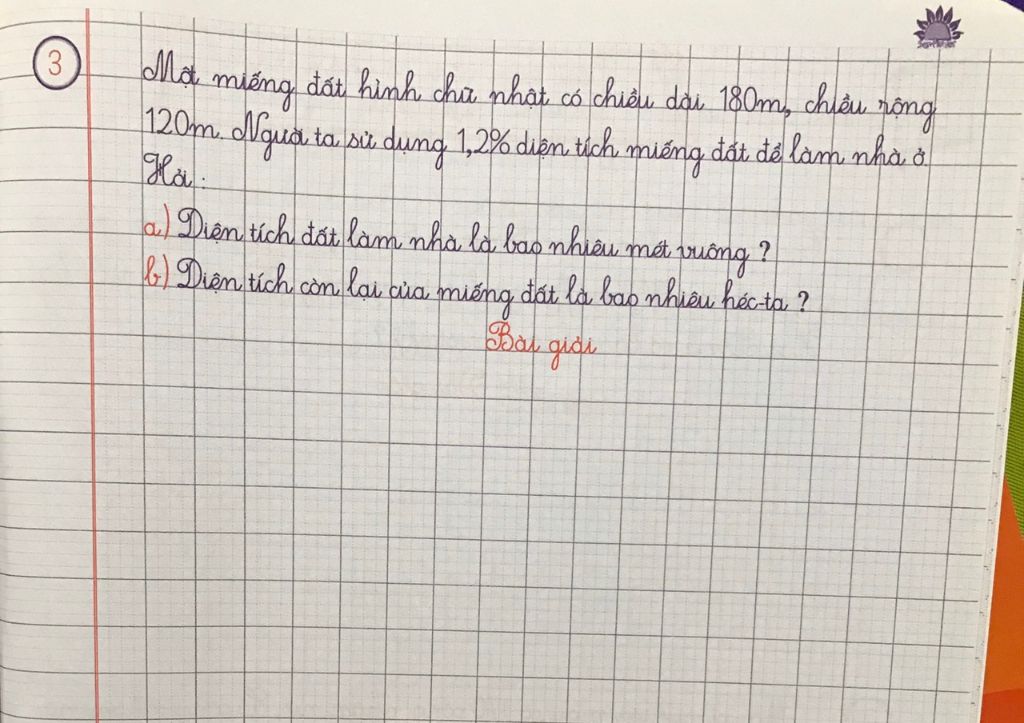 3
Một miếng đất hình chữ nhật có chiều dài 180m, chiều rộng
120m. Người ta sử dụng 1,2% diện tích miếng đất để làm nhà ở.
Hỏi:
a) Diện tích đất làm nhà là bao nhiêu mét vuông?
b) Diện tích còn lại của miếng đất là bao nhiêu héc-ta?
Bài giải